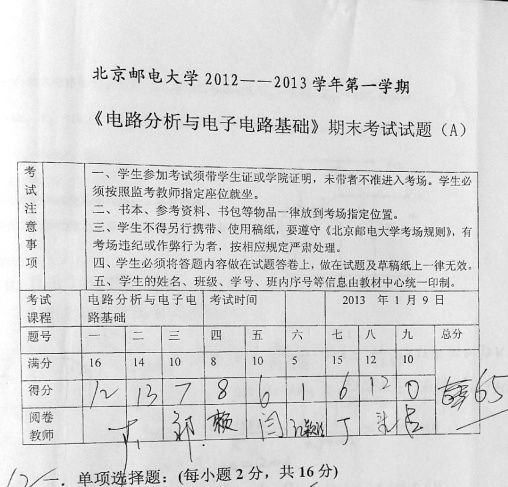 北京邮电大学 2012——2013 学年第一学期
《电路分析与电子电路基础》期末考试试题（A）
考试注意事项
一、学生参加考试须带学生证或学院证明，未带者不准进入考场。学生必
须按照监考教师指定座位就坐。
二、书本、参考资料、书包等物品一律放到考场指定位置。
三、学生不得另行携带、使用稿纸，要遵守《北京邮电大学考场规则》，有
考场违纪或作弊行为者，按相应规定严肃处理。
四、学生必须将答题内容做在试题答卷上，做在试题及草稿纸上一律无效。
五、学生的姓名、班级、学号、班内序号等信息由教材中心统一印制。
考试 电路分析与电子电 考试时间 2013 年 1 月 9 日
课程 路基础
题号 一 二 三 四 五 六 七 八 九 总分
满分 16 14 10 8 10 5 15 12 10
得分 12 13 7 8 6 1 6 12 0 65
阅卷
教师 郭 顾 闫 丁
12 一．单项选择题：(每小题 2 分，共 16 分)